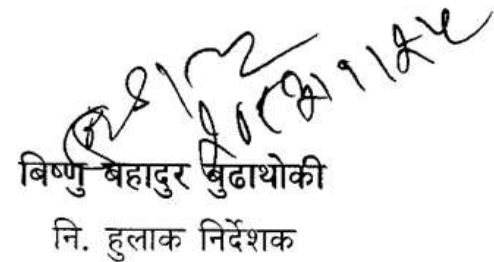 बिष्णु बहादुर बुढाथोकी
नि. हुलाक निर्देशक